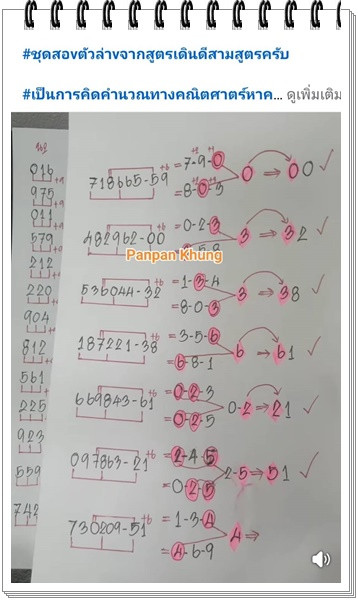 #ชุดสองตัวล่างจากสูตรเดินดีสามสูตรครับ
#เป็นการคิดคำนวณทางคณิตศาตร์หาค... ดูเพิ่มเติม
016
+9
975
+9
011
+9
579
+9
212
220
904
812
561
225
923
559
742
718665-59
+6
=7-9-0
+9 +9
=8-0-5
0 ⇒ 00 ✓
482962-00
=0-2-3
5-8
3 ⇒ 32 ✓
Panpan Khung
536044-32
=1-3-4
=8-0-3
3 ⇒ 38 ✓
187221-38
+6
=3-5-6
=6-8-1
6 ⇒ 61 ✓
669843-61
+6
=0-2-3
=0-2-5
0-2⇒21 ✓
097863-21
+6
=2-4-5
=0-2-5
2-5⇒51 ✓
730209-51
+6
=1-3-4
=4-6-9
4⇒